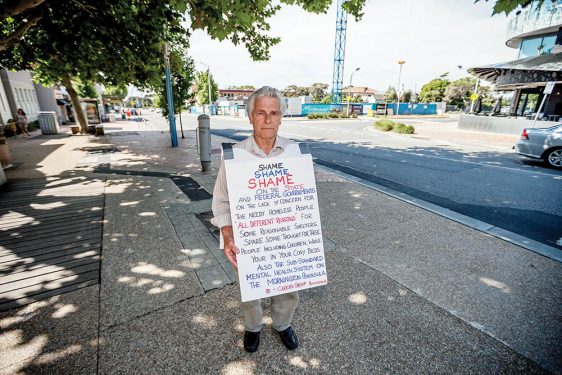 SHAME
SHAME
SHAME
ON THE STATE
AND FEDERAL GOVERNMENTS
ON THE LACK OF CONCERN FOR
THE NEEDY HOMELESS PEOPLE
"ALL DIFFERENT REASONS" FOR
SOME REASONABLE SHELTERS
SPARE SOME THOUGHT FOR THESE
PEOPLE INCLUDING CHILDREN, WHILE
YOUR IN YOUR COSY BEDS.
ALSO THE SUB-STANDARD
MENTAL HEALTH SYSTEM ON
THE MORNINGTON PENINSULA
CARERS GROUP